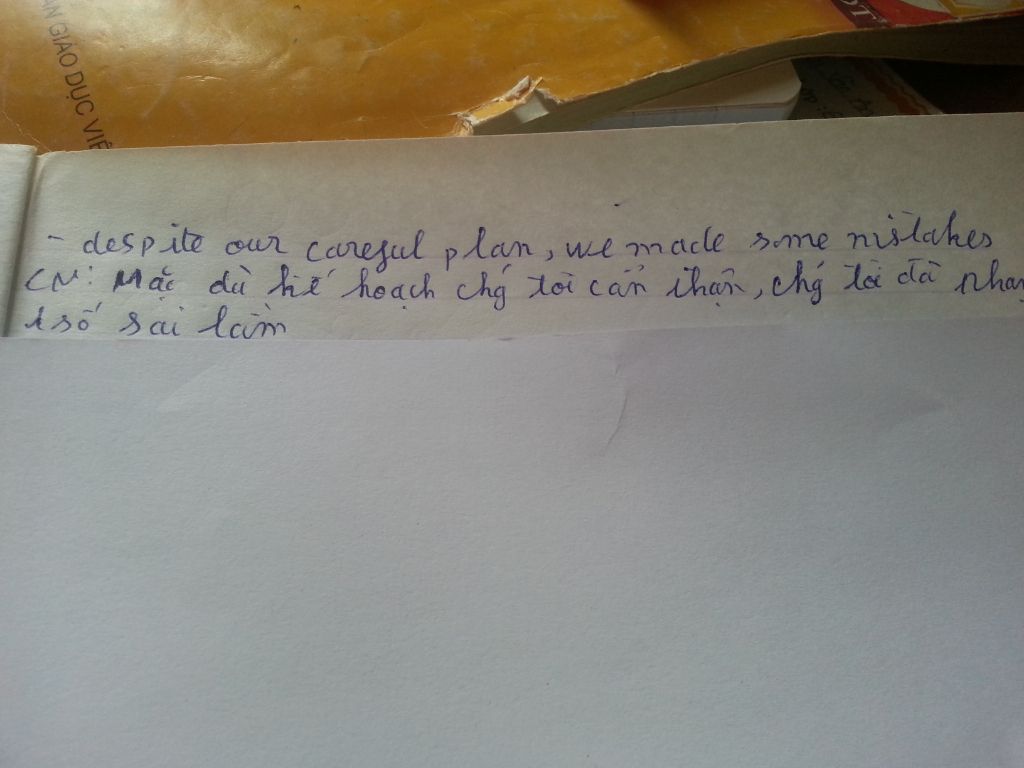 ÁN GIÁO DỤC VIÊ
- despite our careful plan, we made some mistakes
CN: Mặc dù kế hoạch chg tôi cẩn thận, chg tôi đã nhạn
1 số sai lầm